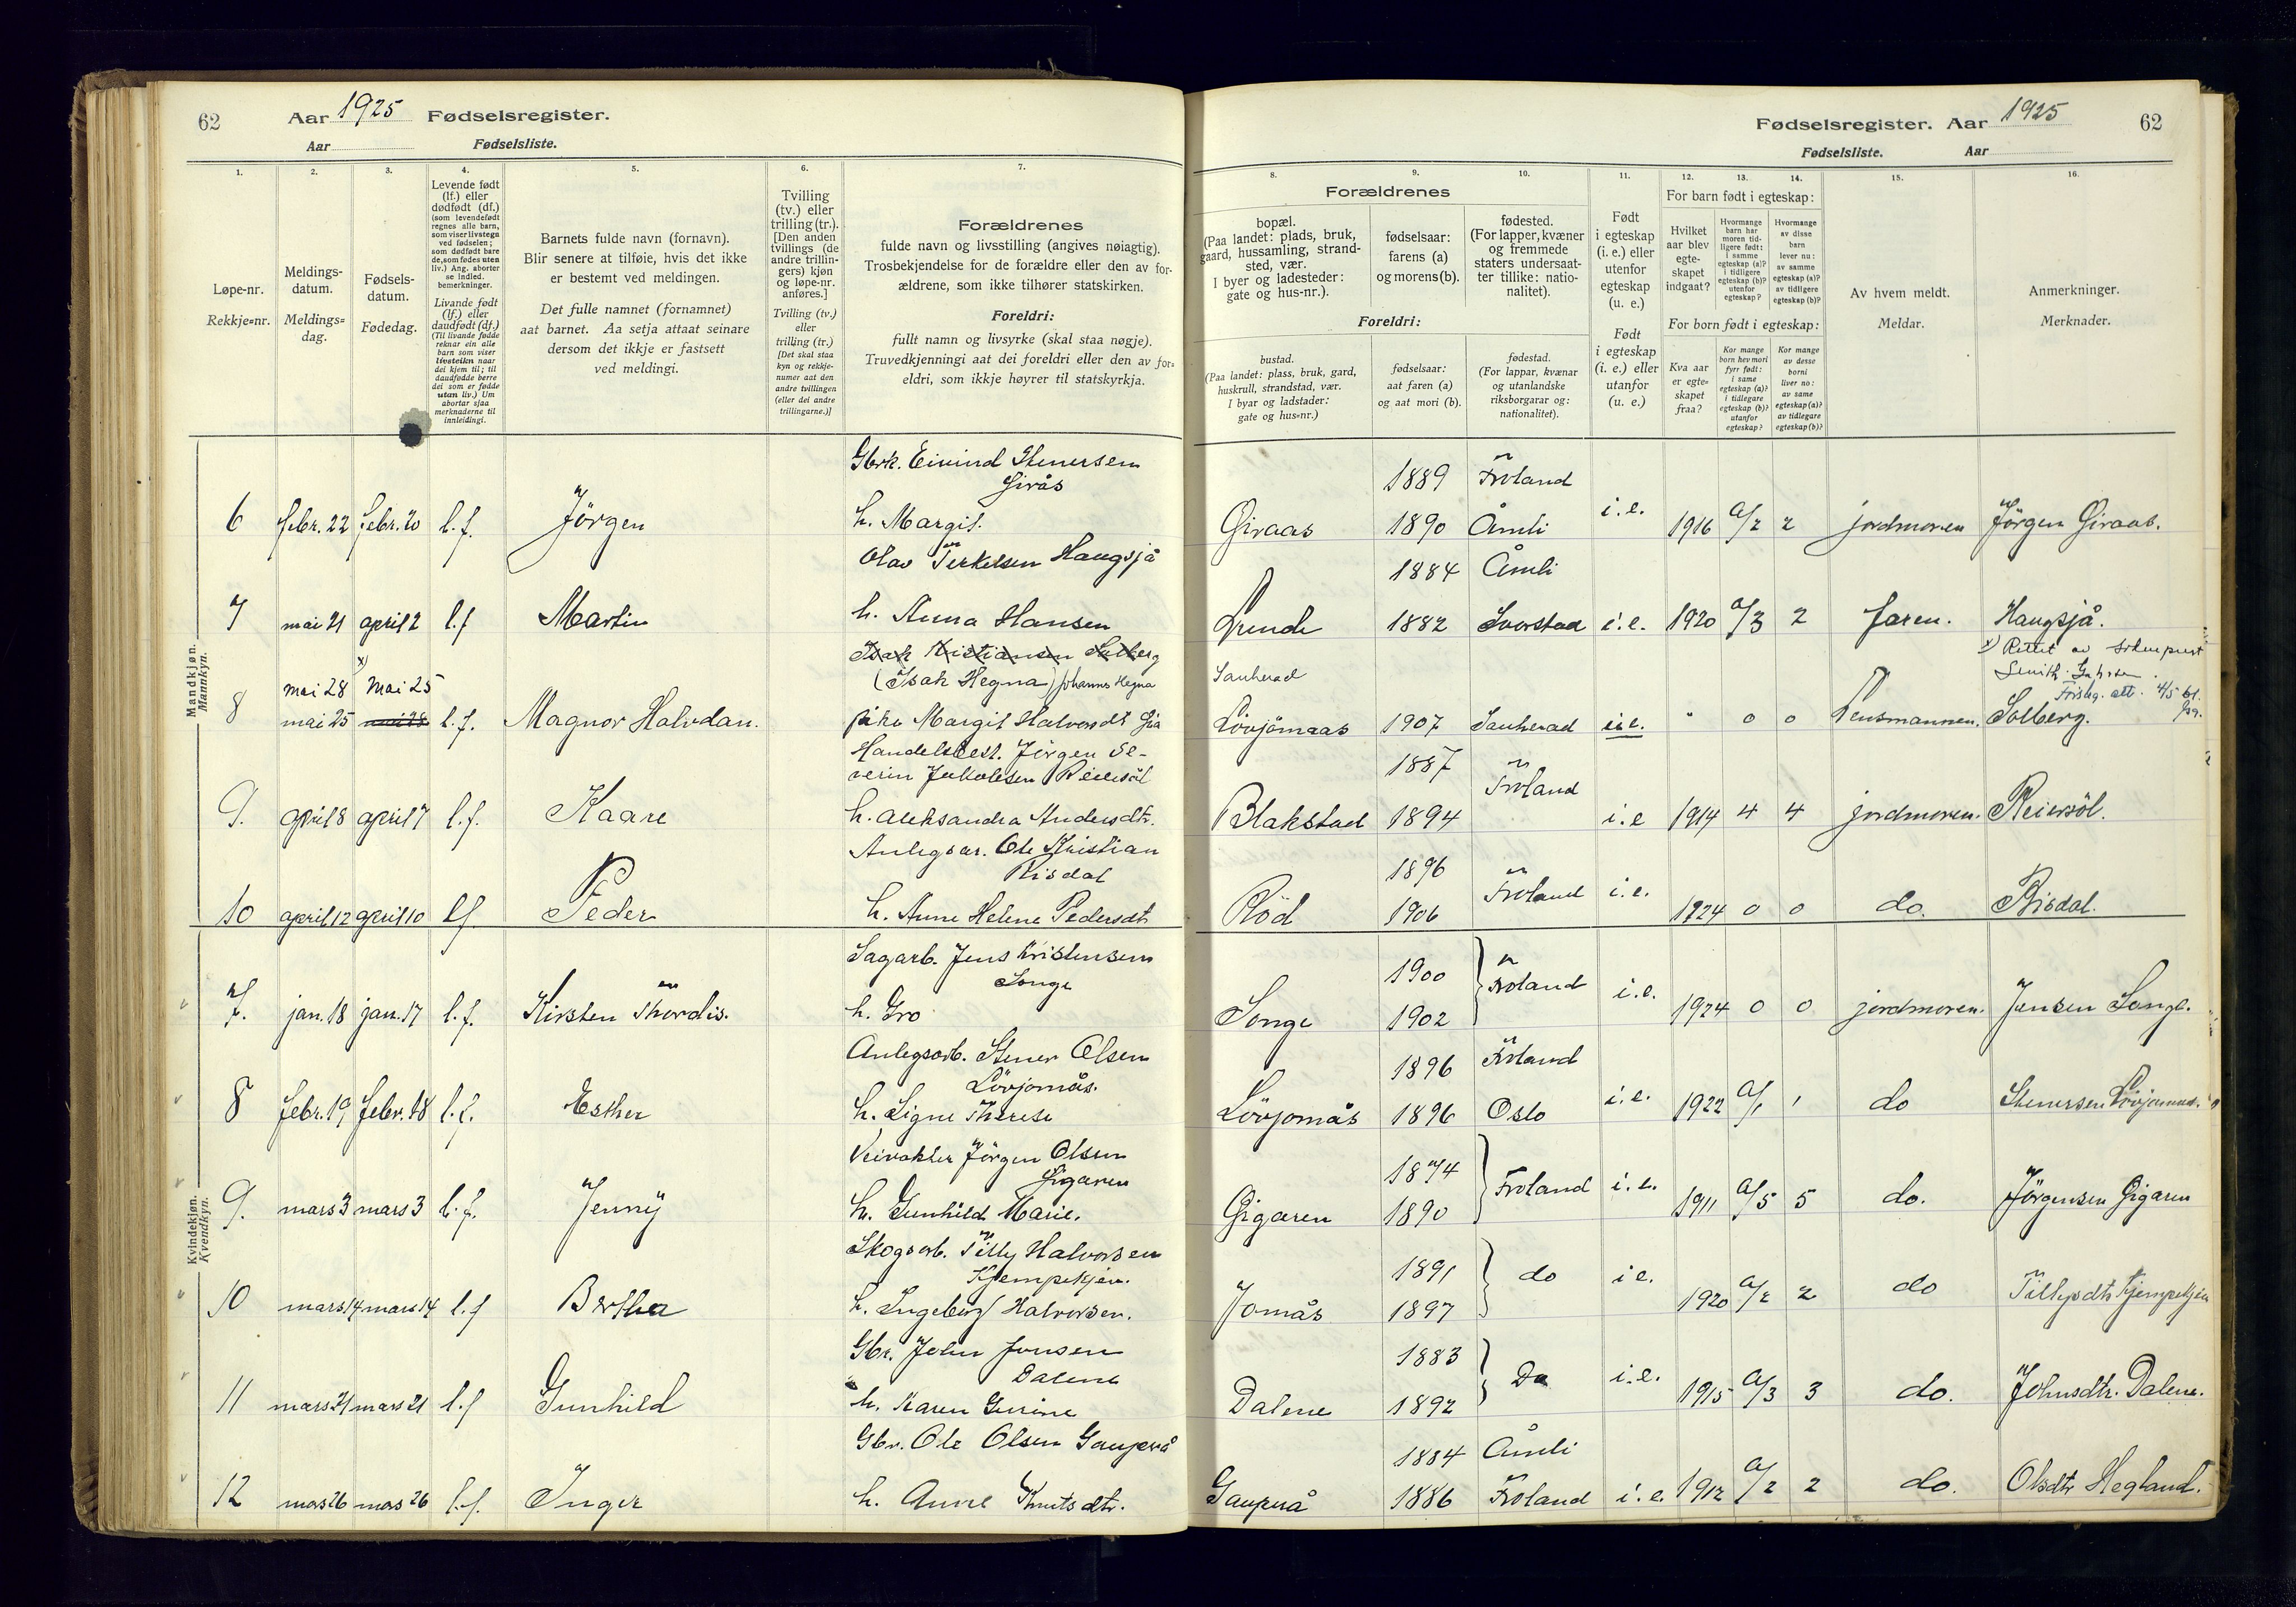 62 Aar 1925 Fødselsregister.
Aar Fødselsliste.
1. 2. 3. 4. 5. 6. 7.
Løpe-nr.
Rekkje=nr.
Meldings-
datum.
Meldings=
dag.
Fødsels-
datum.
Fødedag.
Levende født
(lf.) eller
dødfødt (df.)
(som levendefødt
regnes alle barn,
som viser livstegn
ved fødselen;
som dødfødt bare
de, som fødes uten
liv.) Ang. aborter
se indled.
bemerkninger.
Livande født
(lf.) eller
daudfødt (df.)
(Til livande fødde
reknar ein alle
barn som viser
livsteikn naar
dei kjem til; til
daudfødde berre
dei som er fødde
utan liv.) Um
abortar sjaa
merknaderne til
innleidingi.
Barnets fulde navn (fornavn).
Blir senere at tilføie, hvis det ikke
er bestemt ved meldingen.
Det fulle namnet (fornamnet)
aat barnet. Aa setja attaat seinare
dersom det ikkje er fastsett
ved meldingi.
Tvilling
(tv.) eller
trilling (tr.).
[Den anden
tvillings (de
andre trillin-
gers) kjøn
og løpe-nr.
anføres.]
Tvilling (tv.)
eller
trilling (tr.)
[Det skal staa
kyn og rekkje-
numer aat den
andre tvillingen
(eller dei andre
trillingarne.)]
Forældrenes
fulde navn og livsstilling (angives nøiagtig).
Trosbekjendelse for de forældre eller den av for-
ældrene, som ikke tilhører statskirken.
Foreldri:
fullt namn og livsyrke (skal staa nøgje).
Truvedkjenningi aat dei foreldri eller den av for=
eldri, som ikkje høyrer til statskyrkja.
Mandkjøn.
Mannkyn.
Gbrk. Eivind Stenersen
Girås
6 febr. 22 febr. 20 l. f. Jörgen h. Margit.
Olav Terkelsen Haugsjå
7 mai 21 april 2 l.f Martin h. Anna Hansen
Isak Kristiansen Solberg
x)
mai 28 Mai 25 (Isak Hegna) Johannes Hegna
8 mai 25 mai 28 l.f. Magnor Halvdan. pike Margit Halvorsdt
Handelsbest. Jörgen Se-
verin Jakobsen Reiersöl
9. april 8 april 7 l.f. Kaare h. Aleksandra Andersdtr.
Anlegsar. Ole Kristian
Risdal
10 april 12 april 10 lf. Peder h. Anne Helene Pedersdt
Kvindekjøn.
Kvendkyn.
Sagarb. Jens Kristensen
Songe
7. jan. 18 jan. 17 l. f. Kirsten Thordis. h. Gro
Anlegsarb. Stener Olsen
Lövjomås.
8 febr. 19 febr. 18 l. f. Esther h. Signe Therese
Veivakter Jörgen Olsen
Gigaren
9. mars 3 mars 3 l. f. Jenny h. Gunhild Marie.
Skogsarb. Tilly Halvorsen
Kjempekjen.
10 mars 14 mars 14 l. f Bertha h. Ingeborg Halvorsen.
Gbr. John Jonsen
Dalene
11 mars 21 mars 21 l. f Gunhild h. Karen Gurine
Gbr. Ole Olsen Gauperå
12 mars 26 mars 26 l.f. Inger h. Anne Knutsdtr.
Fødselsregister. Aar 1925 62
Fødselsliste. Aar
8. 9. 10. 11. 12. 13. 14. 15. 16.
Forældrenes
bopæl.
(Paa landet: plads, bruk,
gaard, hussamling, strand-
sted, vær.
I byer og ladesteder:
gate og hus-nr.).
fødselsaar:
farens (a)
og morens (b).
fødested.
(For lapper, kvæner
og fremmede
staters undersaat-
ter tillike: natio-
nalitet).
Foreldri:
bustad.
(Paa landet: plass, bruk, gard,
huskrull, strandstad, vær.
I byar og ladstader:
gate og hus=nr.)
fødselsaar:
aat faren (a)
og aat mori (b).
fødestad.
(For lappar, kvænar
og utanlandske
riksborgarar og:
nationalitet).
Født
i egteskap
(i. e.) eller
utenfor
egteskap
(u. e.)
Født
i egteskap
(i. e.) eller
utanfor
(u. e.)
For barn født i egteskap:
Hvilket
aar blev
egte-
skapet
indgaat?
Hvormange
barn har
moren tid-
ligere født:
i samme
egteskap (a)?
i tidligere
egteskap (b)?
utenfor
egteskap?
Hvormange
av disse
barn
lever nu:
av samme
egteskap (a)?
av tidligere
egteskap (b)?
For born født i egteskap:
Kva aar
er egte-
skapet
fraa?
Kor mange
born hev mori
fyrr født:
i same
egteskap (a)?
i tidlegare
egteskap (b)?
utanfor
egteskap?
Kor mange
av desse
borni
liver no:
av same
egteskap (a)?
av tidlegare
egteskap (b)?
Av hvem meldt.
Meldar.
Anmerkninger.
Merknader.
1889 Froland
Giraas 1890 Åmli i. e. 1916 a/2 2 jordmoren Jörgen Giraas.
1884 Åmli
1882 i. e. 1920 a/3 2 faren. Haugsjå.
x) Rettet av sokneprest
Sauherad
Lövjömaas 1907 Sauherad i.e. " 0 0 Lensmannen. Solberg.
1887 Froland
Blakstad 1894 i. e 1914 4 4 jordmoren. Reiersöl.
1896 Froland
Röd 1906 i. e. 1924 0 0 do. Risdal.
1900 Froland
Songe 1902 i. e. 1924 0 0 jordmoren. Jensen Songe.
1896 Froland
Lövjomås 1896 Oslo i. e. 1922 a/1 1 do Stenersen Lövjomaas.
1874 Froland
Gigaren 1890 i. e. 1911 a/5 5 do. Jörgensen Gigaren
1891 do
Jomås 1897 i e. 1920 a/2 2 do Tillysdtr Kjempekjen
1883 Do
Dalene 1892 i. e. 1915 a/3 3 do. Johnsdtr. Dalene.
1884 Åmli
Gauperå 1886 Froland i. e. 1912 a/2 2 do. Olsdtr Hegland.